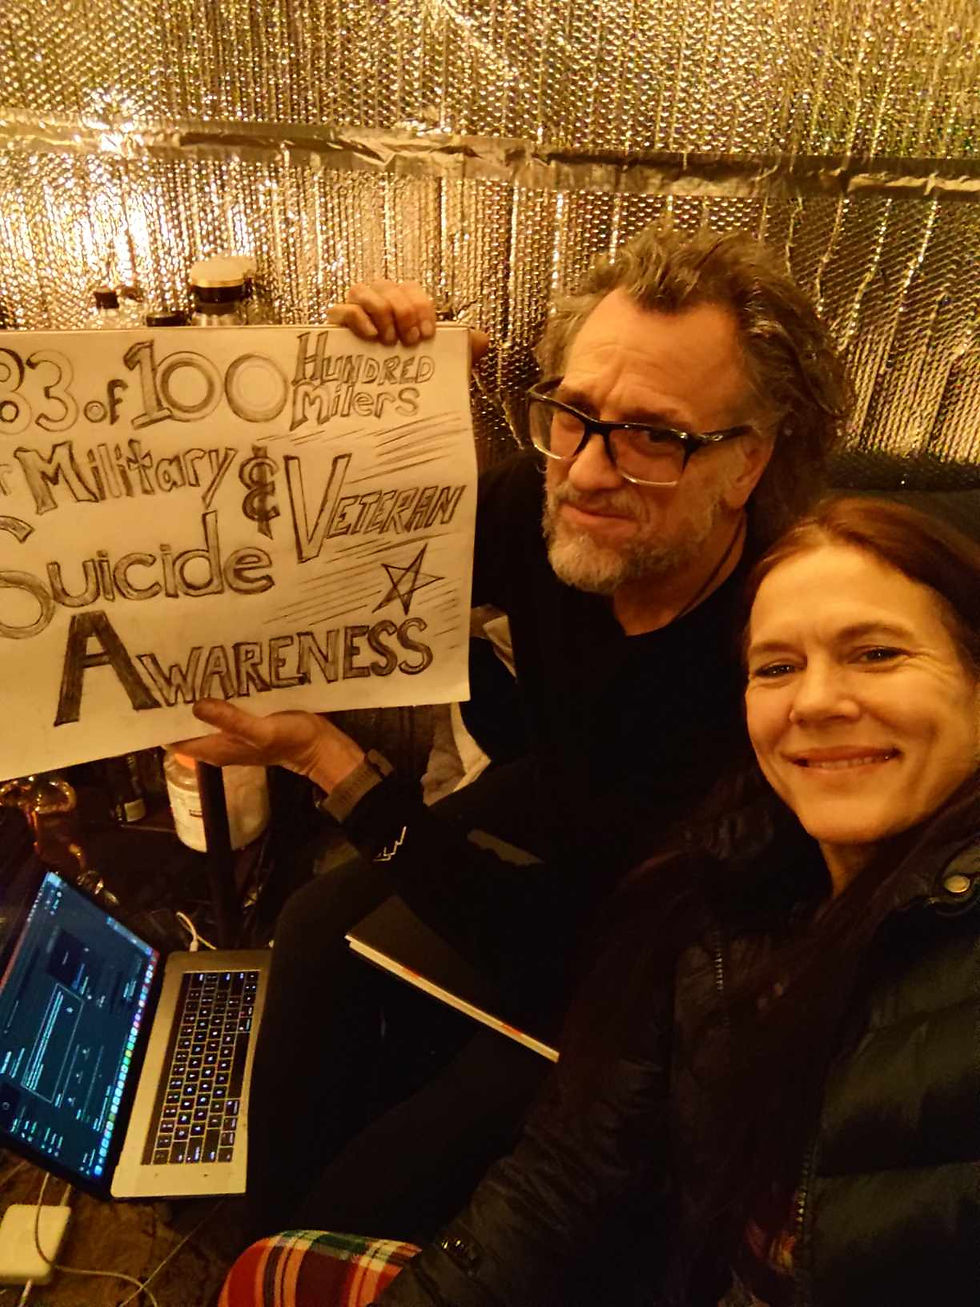 83 of 100 HUNDRED Milers
r Military & VETERAN
Suicide
AWARENESS